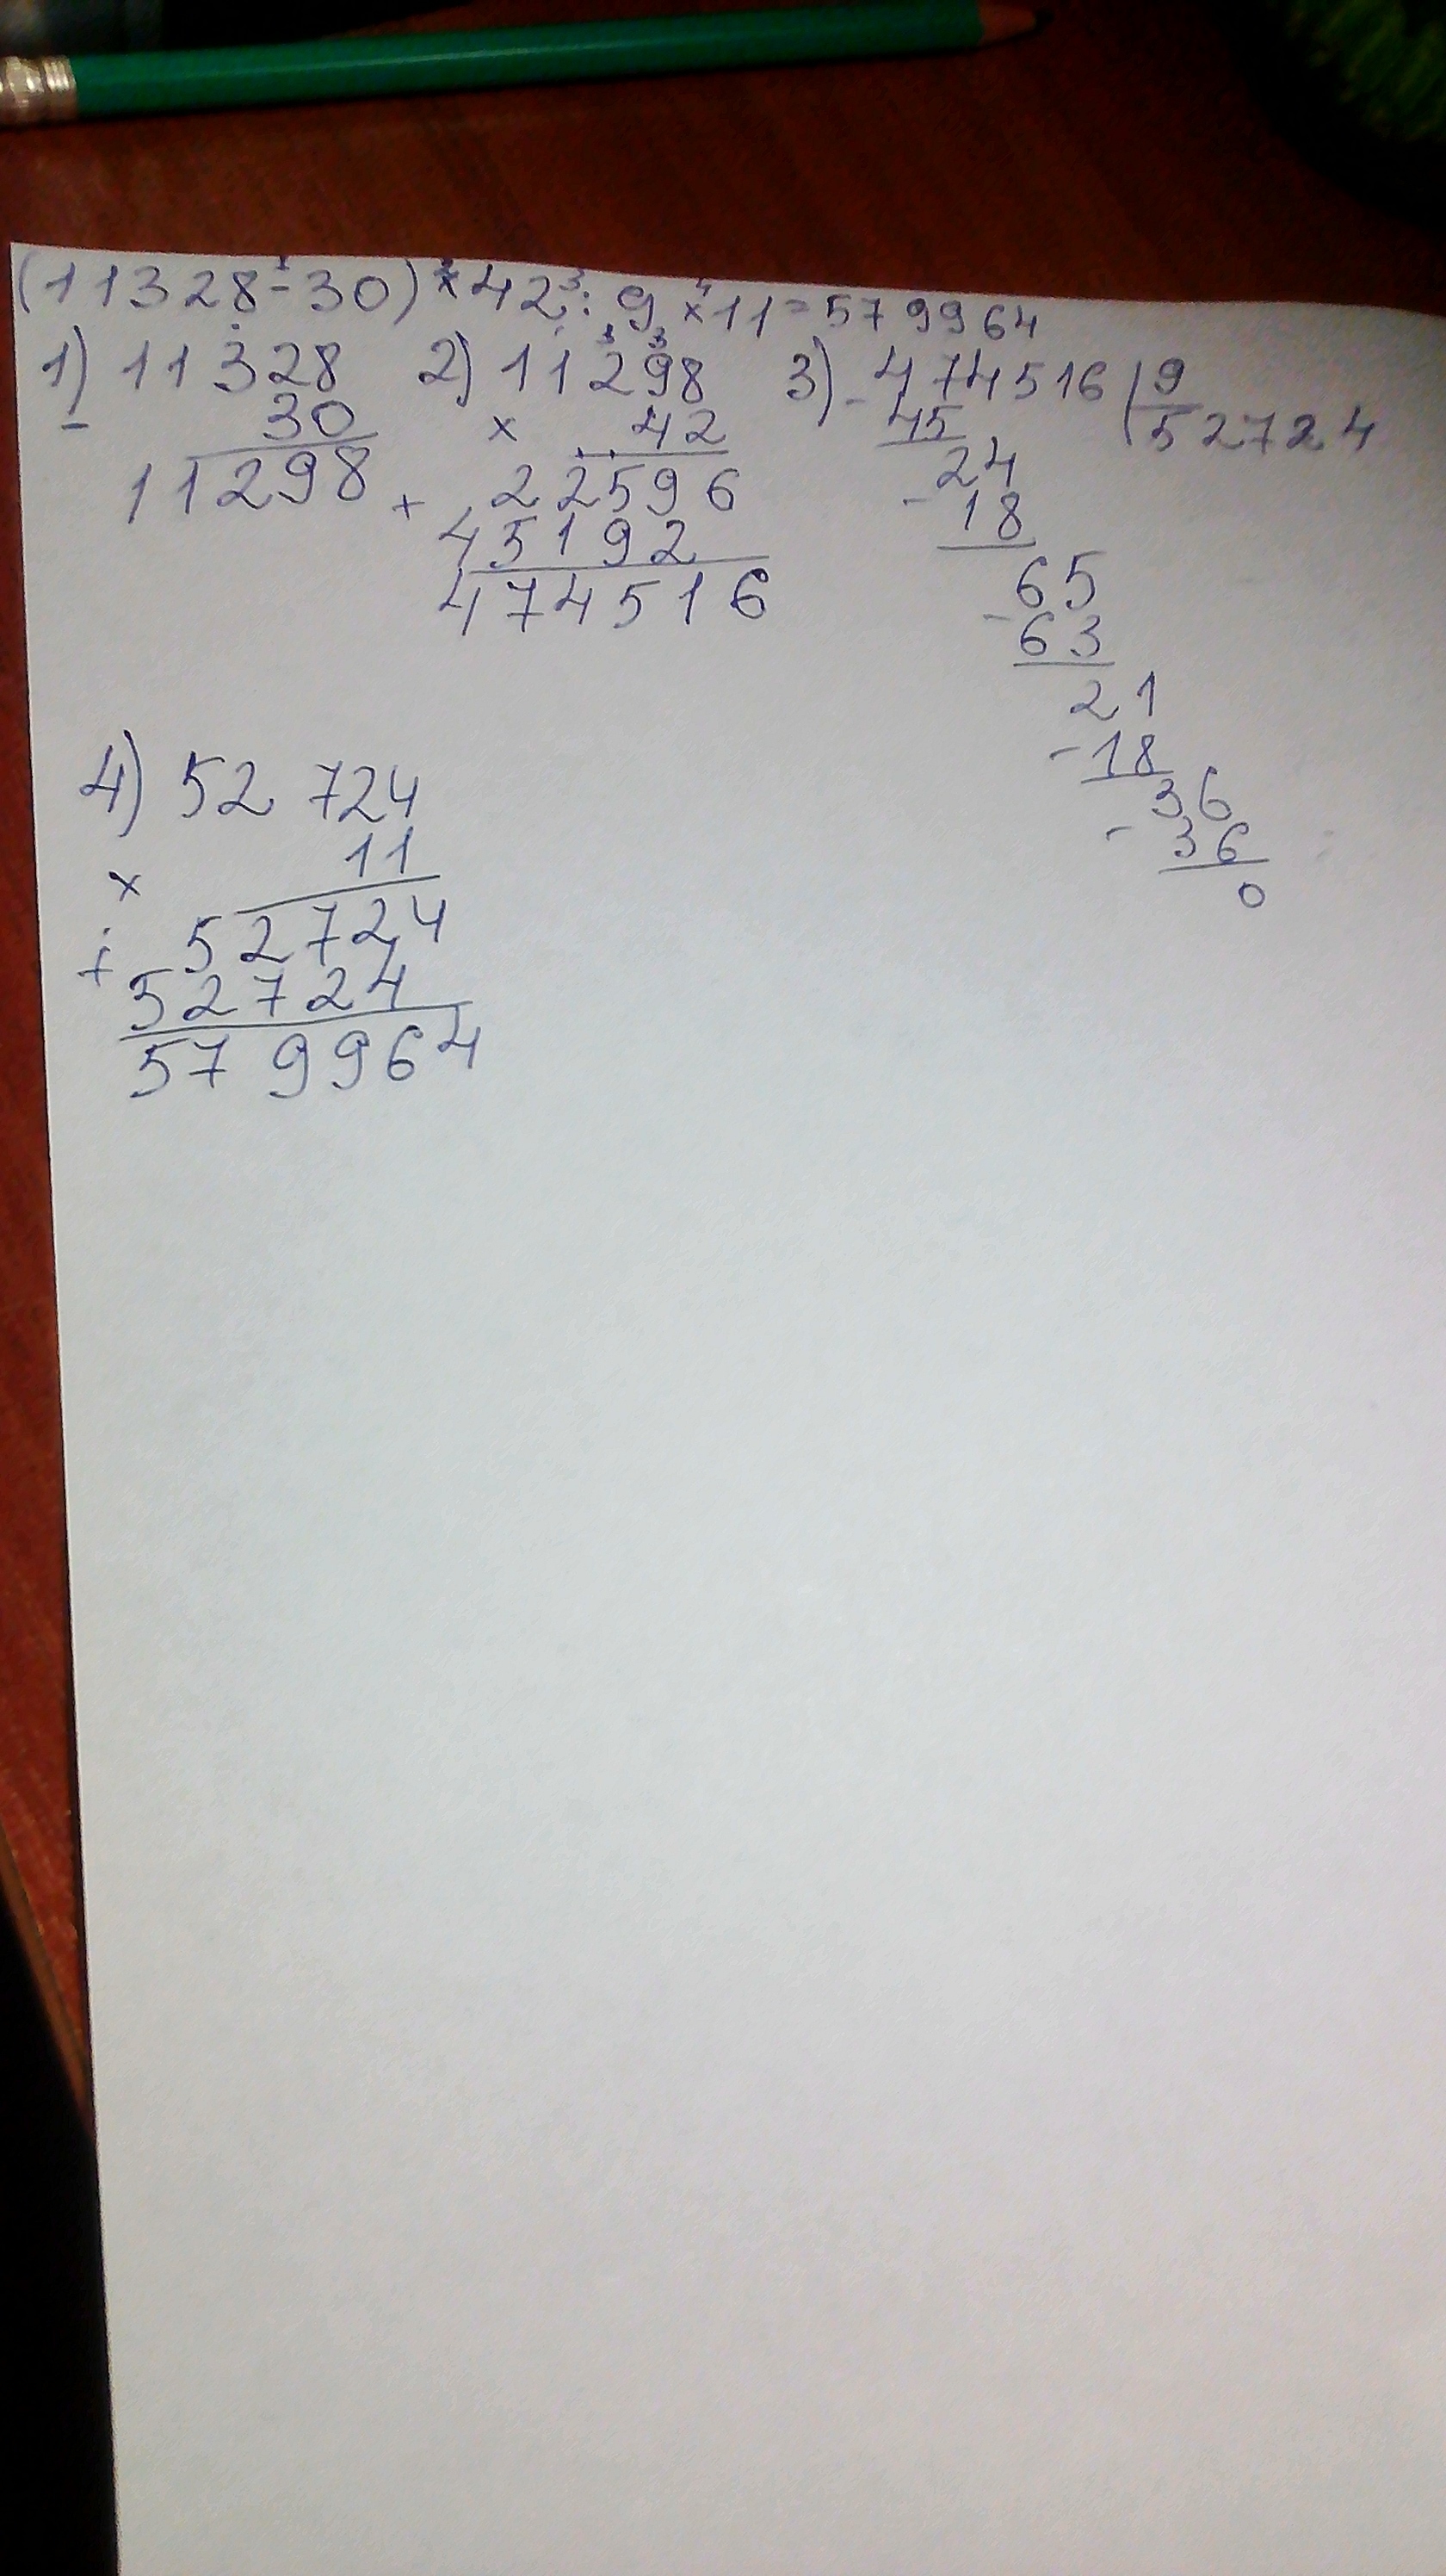 (11328-30)×42:9×11=579964
1) 11328
- 30
11298
2) 11298
× 42
+ 22596
45192
474516
3) - 474516 | 9
45 52724
24
- 18
65
- 63
21
- 18
36
- 36
0
4) 52 724
× 11
+ 52724
52724
57 9964